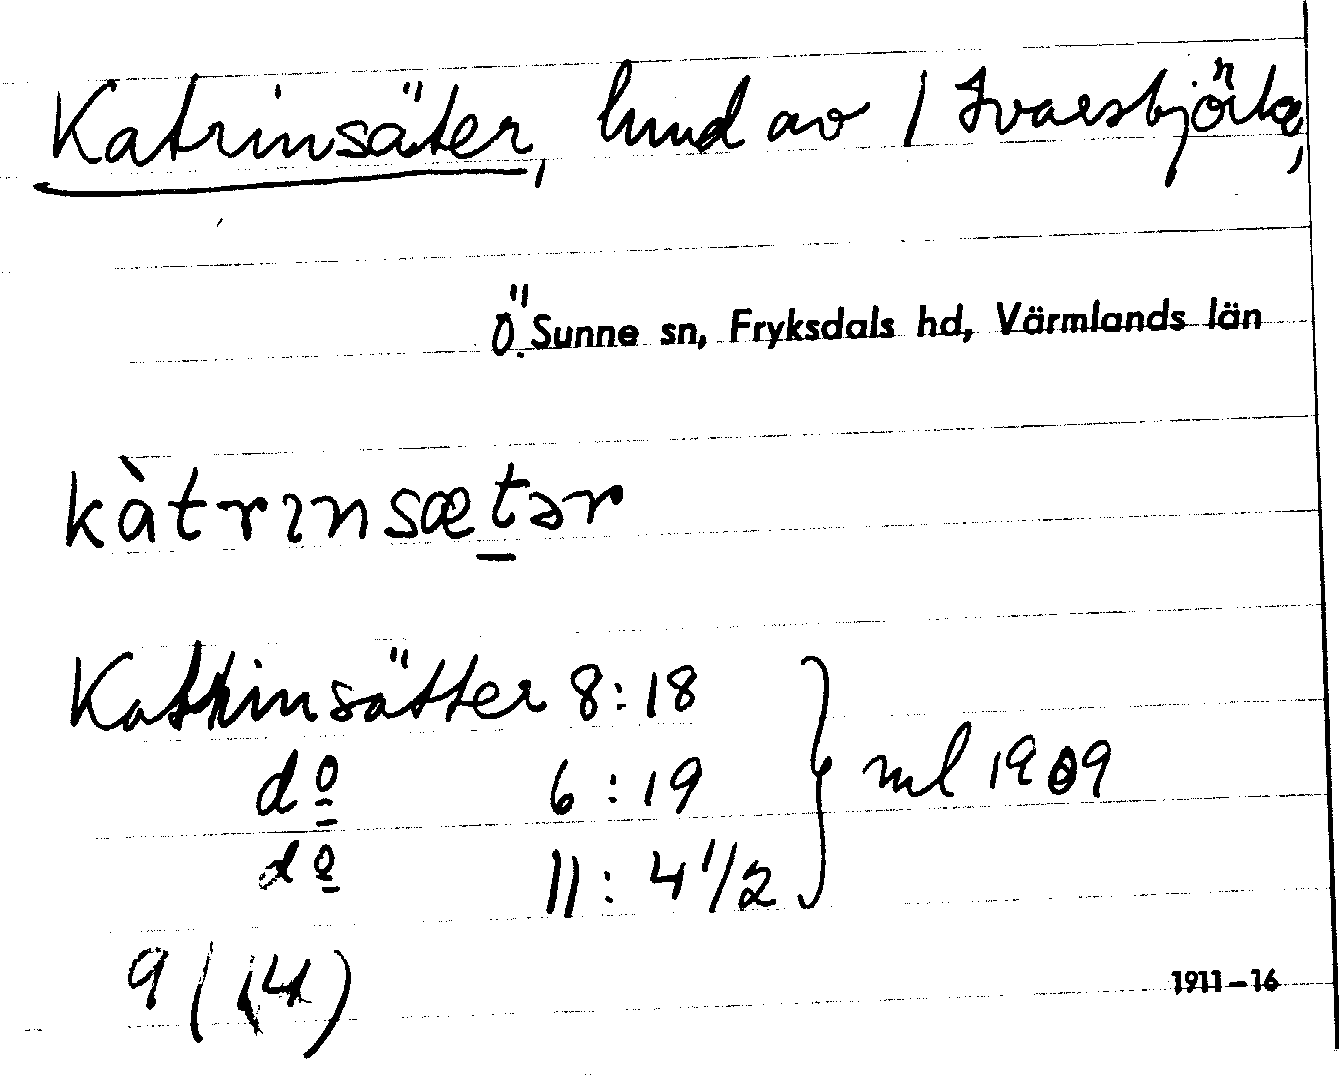 Katrinsäter, hmd av 1 Ivarsbjörke,
Ö. Sunne sn, Fryksdals hd, Värmlands län
kàtrɪnsætər
Katrinsätter 8:18
do 6:19
do 11: 4 1/2
ml 1909
9 (14)
1911–16